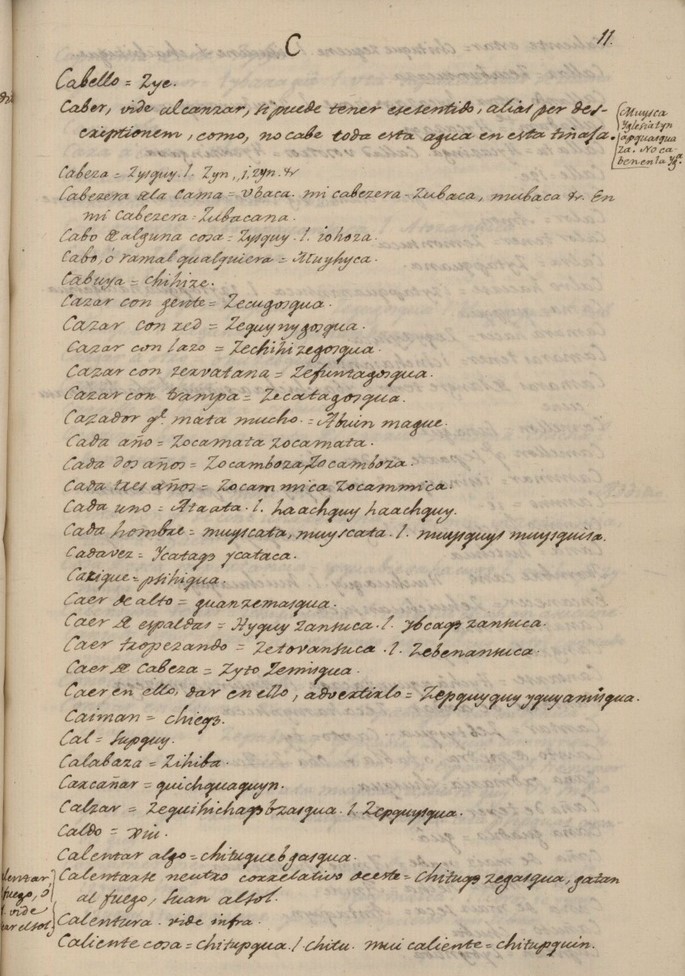 C
11.
Cabello = Zye.
Caber, vide alcanzar, si puede tener esesentido, alias per des-
creptionem, como, no cabe toda esta agua en esta tinafa.
Muysca
Yglesia tyn
apquasqua
za. No ca-
ben en la
Cabeza = Zysquy. l. Zyn, i, zyn. &
Cabezera de la cama = vbaca. mi cabezera = Zubaca, mubaca &. En
mi cabezera = Zubacana.
Cabo de alguna cosa = Zysquy. l. iohoza.
Cabo, ó ramal qualquiera = Muyhyca.
Cabuya = chihize.
Cazar con gente = Zecugosqua.
Cazar con red = Zequynygosqua.
Cazar con lazo = Zechihizegosqua.
Cazar con zervatana = Zefuntagosqua.
Cazar con trampa = Zecatagosqua.
Cazador q.^e mata mucho. = Abuin mague.
Cada año = Zocamata zocamata.
Cada dos años = Zocamboza, Zocamboza.
Cada tres años = Zocammica Zocammica.
Cada uno = Ataata. l. haachquy haachquy.
Cada hombre = muyscata, muyscata. l. muysquys muysquisa.
Cadavez = Ycataqɜ ycataca.
Cazique = psihiqua.
Caer de alto = guanzemasqua.
Caer de espaldas = Hyquy zansuca. l. ybcaqɜ zansuca.
Caer tropezando = Zetovansuca. l. Zebenansuca.
Caer de Cabeza = Zyto Zemisqua.
Caer en ello, dar en ello, advertirlo = Zepquyquy yquyamisqua.
Caiman = chieqɜ.
Cal = supquy.
Calabaza = Zihiba.
Carcañar = quichquaquyn.
Calzar = Zequihichaqɜ bzasqua. l. Zepquysqua.
Caldo = xiu.
Calentar algo = chituqueb gasqua.
Calentarse neutro correlativo oceste = chituqɜ zegasqua, gatan
al fuego, Suan al sol.
lentar
fuego, ó
l. vide
tar el sol
Calentura. vide infra.
Caliente cosa = chitupqua. l. chitu. mui caliente = chitupquin.